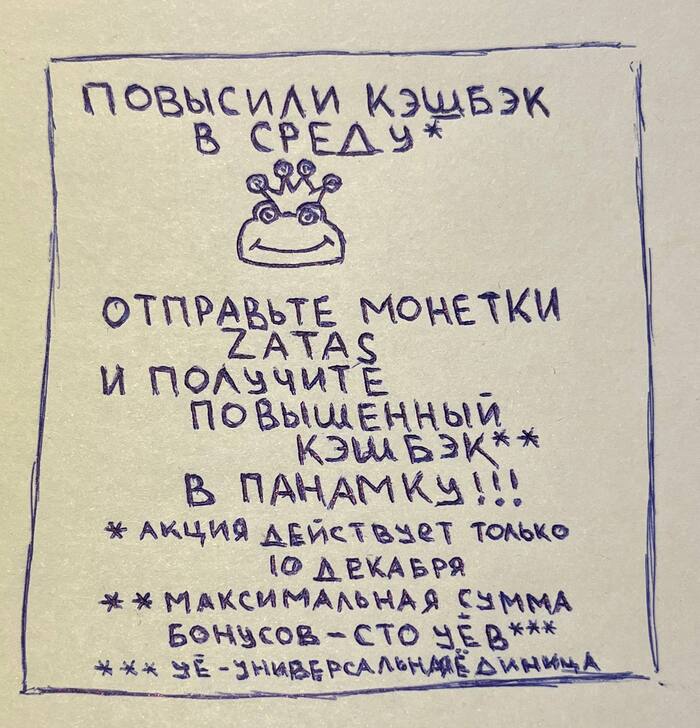 ПОВЫСИЛИ КЭШБЭК
В СРЕДУ*
ОТПРАВЬТЕ МОНЕТКИ
ZATAS
И ПОЛУЧИТЕ
ПОВЫШЕННЫЙ
КЭШБЭК**
В ПАНАМКУ!!!
* АКЦИЯ ДЕЙСТВУЕТ ТОЛЬКО
10 ДЕКАБРЯ
** МАКСИМАЛЬНАЯ СУММА
БОНУСОВ - СТО УЁВ***
*** УЁ - УНИВЕРСАЛЬНАЯ ЁДИНИЦА